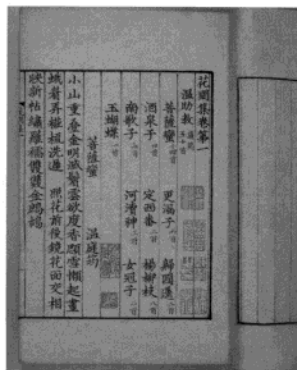 花間集卷第一
溫助教
菩薩蠻 更漏子 歸國遙
酒泉子 定西番 楊柳枝
南歌子 河瀆神 女冠子
玉蝴蝶
菩薩蠻 溫庭筠
小山重疊金明滅鬢雲欲度香顋雪懶起畫
蛾眉弄粧梳洗遲 照花前後鏡花面交相
映新帖繡羅襦雙雙金鷓鴣